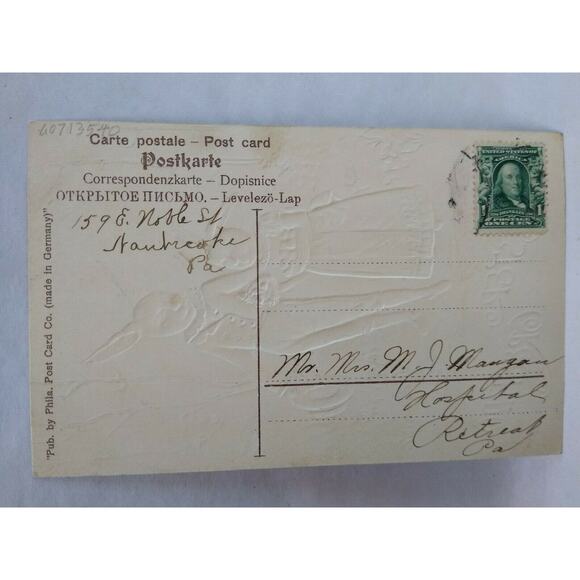 60713540
Carte postale – Post card
Postkarte
Correspondenzkarte – Dopisnice
ОТКРЫТОЕ ПИСЬМО. – Levelezö-Lap
159 E. Noble St
Nanticoke
Pa
"Pub. by Phila. Post Card Co. (made in Germany)"
UNITED STATES OF
AMERICA
POSTAGE
ONE CENT
Mr. Mrs. M. J. Mangan
Hospital
Retreat
Pa